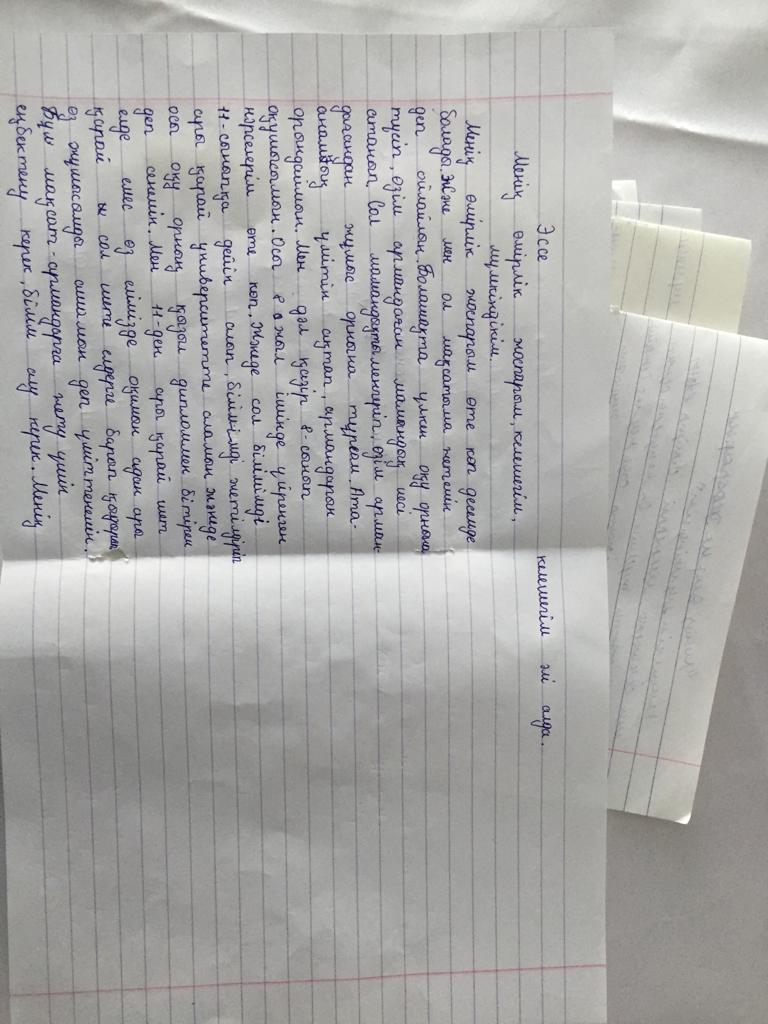 Эссе
Менің өмірлік жоспарым, келешегім,
мүмкіндікім.
Менің өмірлік жоспарым өте көп десемде
болады. Және мен ол мақсатыма жетемін
деп ойлаймын. Болашақта үлкен оқу орнына
түсіп, өзім армандаған мамандық иесі
атанап Сол мамандықты меңгеріп, өзім арман-
дағандан жұмыс орнына тұрсам. Ата-
анамның үмітін ақтап, армандарын
орындаймын. Мен дәл қазір 8-сынып
оқушысымын. Осы 8 жыл ішінде үйренген
нәрселерім өте көп. Жәнеде сол білімімді
11-сыныпқа дейін алып, білімімді жетілдіріп
ары қарай университетте аламын жәнеде
осы оқу орның қызыл дипломмен бітірем
деп сенемін. Мен 11-ден ары қарай шет
елде емес өз елімізде оқимын одан ары
қарай ы сол шете елдерге барып
өз оқушысымды ашамын деп үміттенемін.
Бұл мақсат-армандарға жету үшін
еңбектену керек, білім алу керек. Менің
келешегім әлі алда.